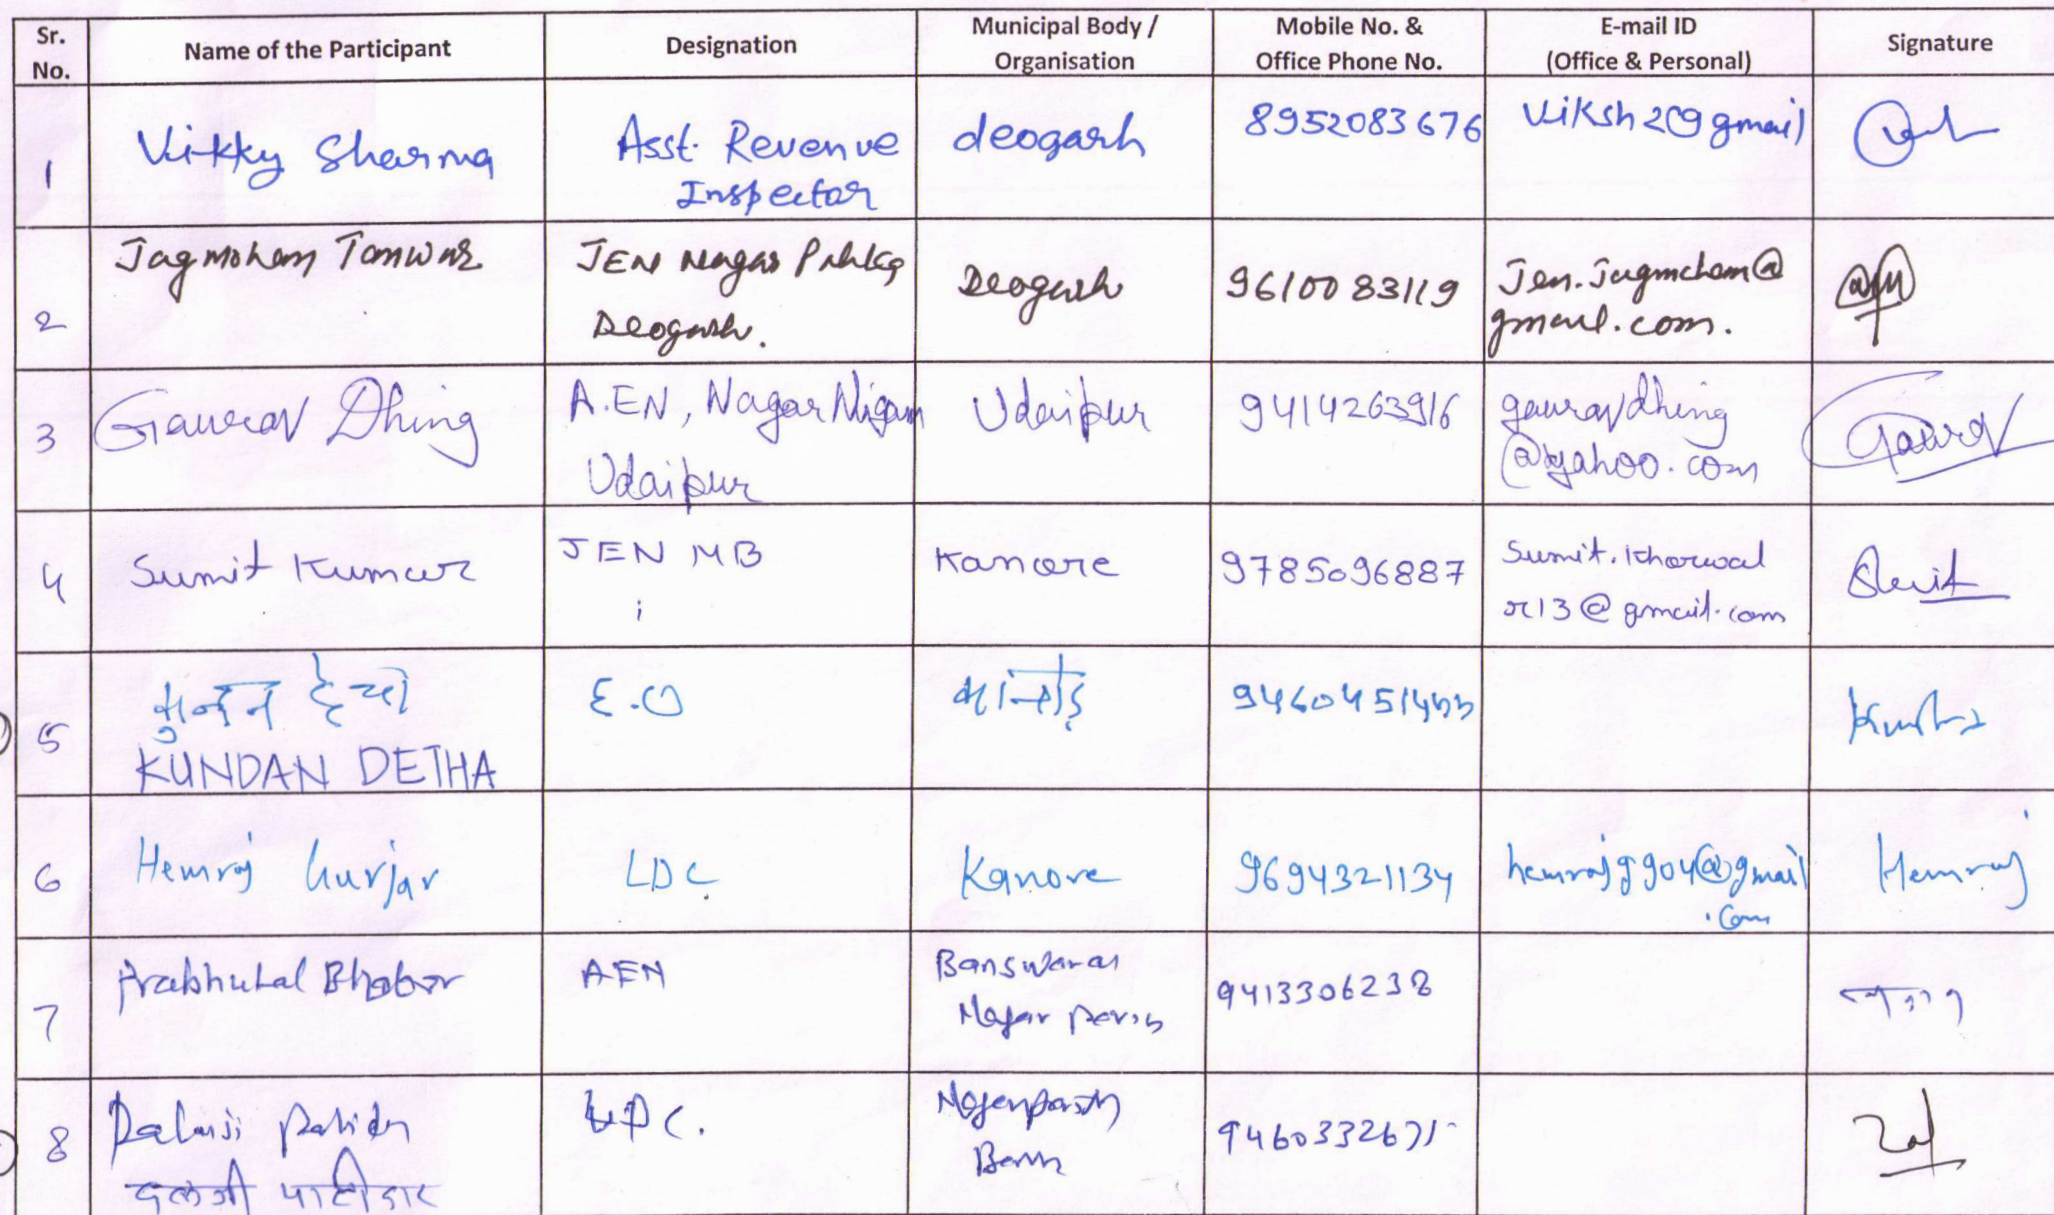 Sr. No. Name of the Participant Designation Municipal Body / Organisation Mobile No. & Office Phone No. E-mail ID (Office & Personal) Signature
1 Vikky Sharma Asst. Revenue Inspector deogarh 8952083676 Viksh2@gmail
2 Jagmohan Tanwar JEN Nagar Palika Deogarh. Deogarh 9610083119 Jen.Jagmohan@gmail.com.
3 Gaurav Dhing A.EN, Nagar Nigam Udaipur Udaipur 9414263916 gauravdhing@yahoo.com Gaurav
4 Sumit Kumar JEN MB Kanore 9785096887 Sumit.kharwal r13@gmail.com Sumit
5 KUNDAN DETHA E.O
6 Hemraj Gurjar LDC Kanore 9694321134 hemrajg904@gmail.com Hemraj
7 Prabhulal Bhabor AEN Banswara Nagar 9413306238
8 Dalaji Patidar दलजी पाटीदार